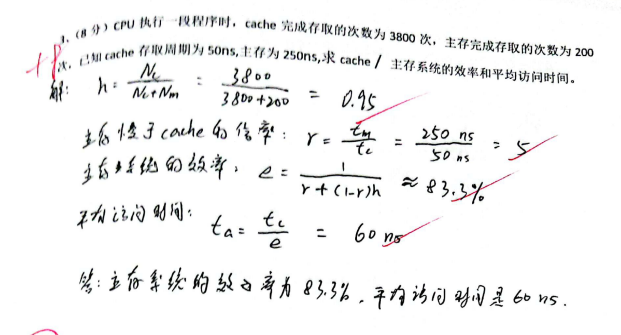 +8
1、(8 分) CPU 执行一段程序时，cache 完成存取的次数为 3800 次，主存完成存取的次数为 200
次，已知 cache 存取周期为 50ns,主存为 250ns,求 cache / 主存系统的效率和平均访问时间。
解: h = Nc / (Nc+Nm) = 3800 / (3800+200) = 0.95
主存慢于cache的倍率: r = tm / tc = 250 ns / 50 ns = 5
主存系统的效率: e = 1 / (r+(1-r)h) ≈ 83.3%
平均访问时间: ta = tc / e = 60 ns
答: 主存系统的效率为 83.3%, 平均访问时间是 60 ns.